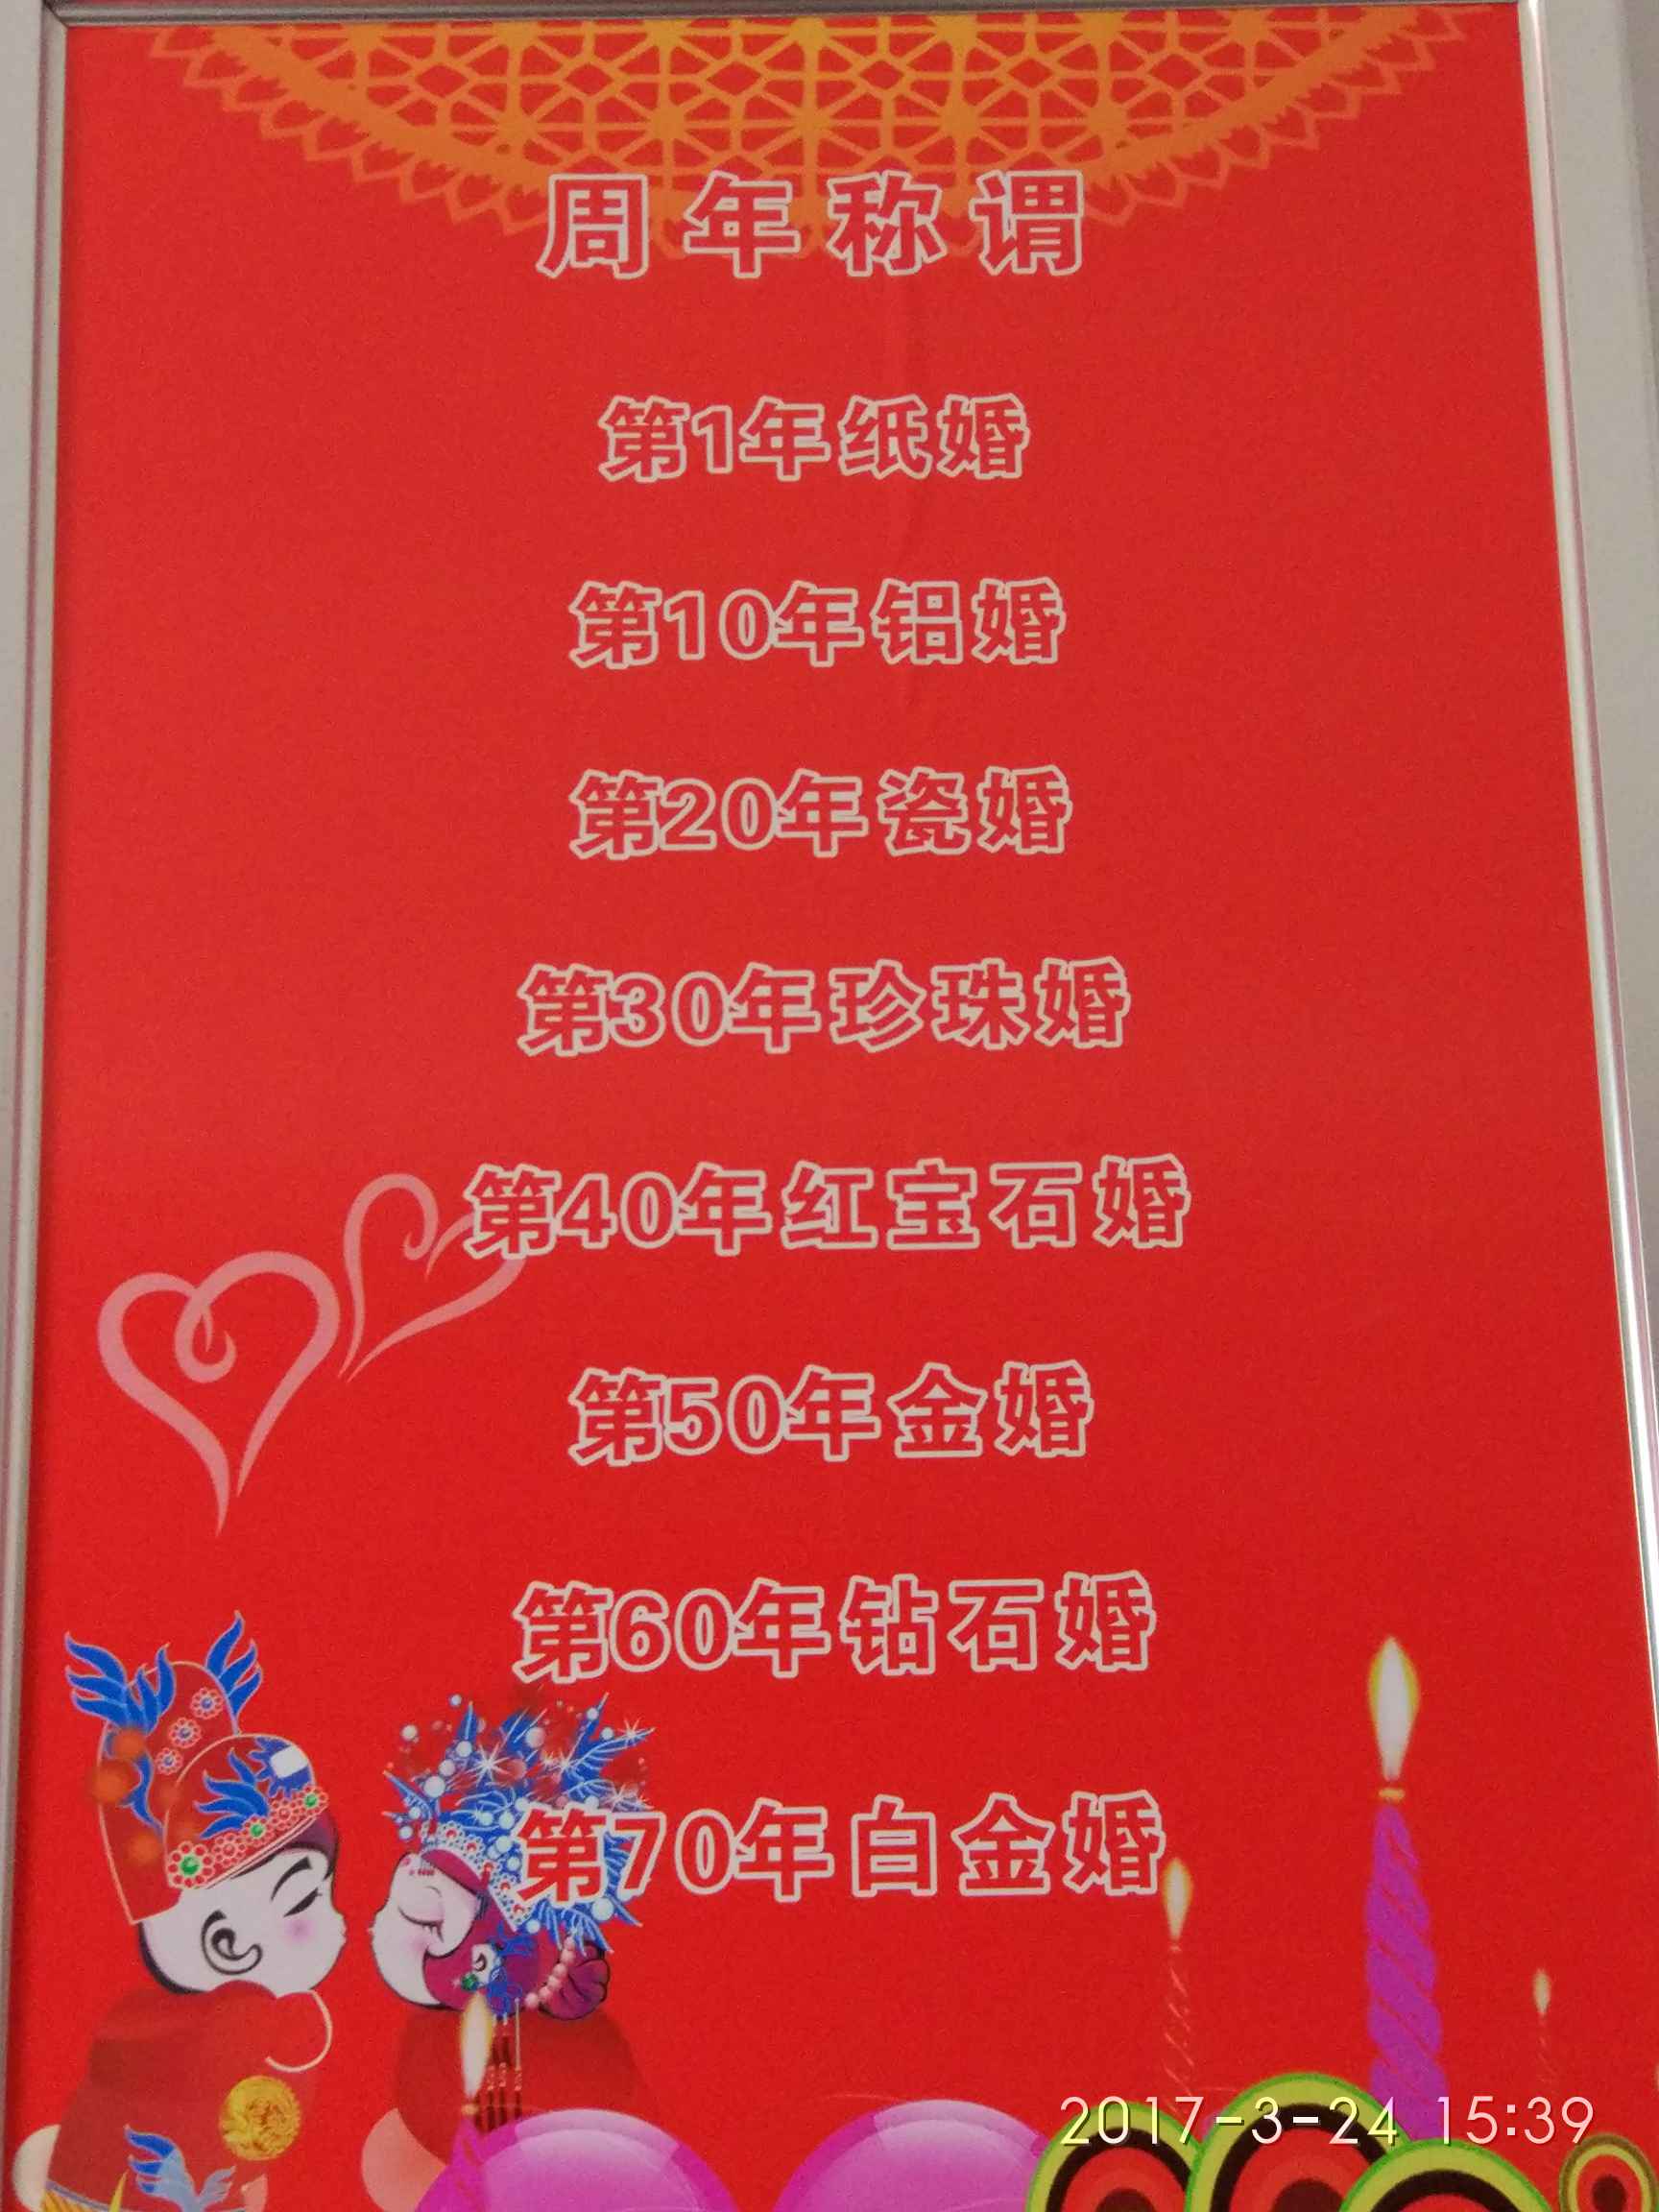 周年称谓
第1年纸婚
第10年铝婚
第20年瓷婚
第30年珍珠婚
第40年红宝石婚
第50年金婚
第60年钻石婚
第70年白金婚
2017-3-24 15:39